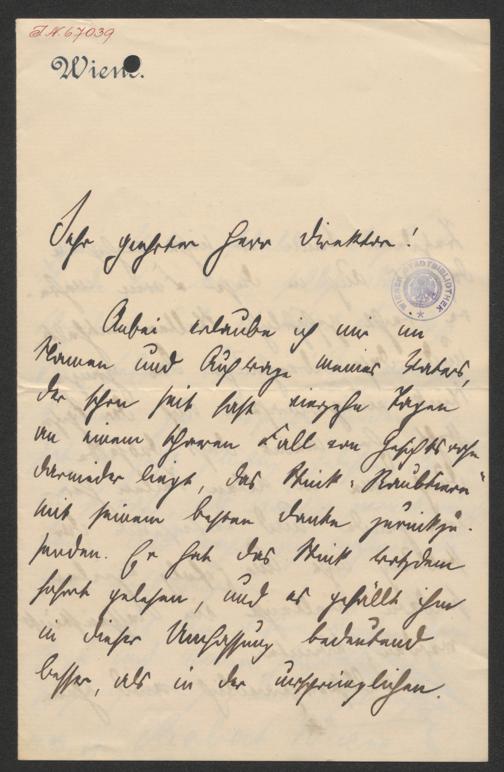 J.N. 67039
Wien.
WIENER STADTBIBLIOTHEK
Sehr geehrter Herr Direktor!
Anbei erlaube ich mir im
Namen und Auftrage meines Vaters,
der schon seit fast vierzehn Tagen
an einem schweren Fall von Gesichtsrose
darnieder liegt, das Stück "Raubtiere"
mit seinem besten Danke zurückzu-
senden. Er hat das Stück trotzdem
sofort gelesen, und es gefällt ihm
in dieser Umfassung bedeutend
besser, als in der ursprünglichen.